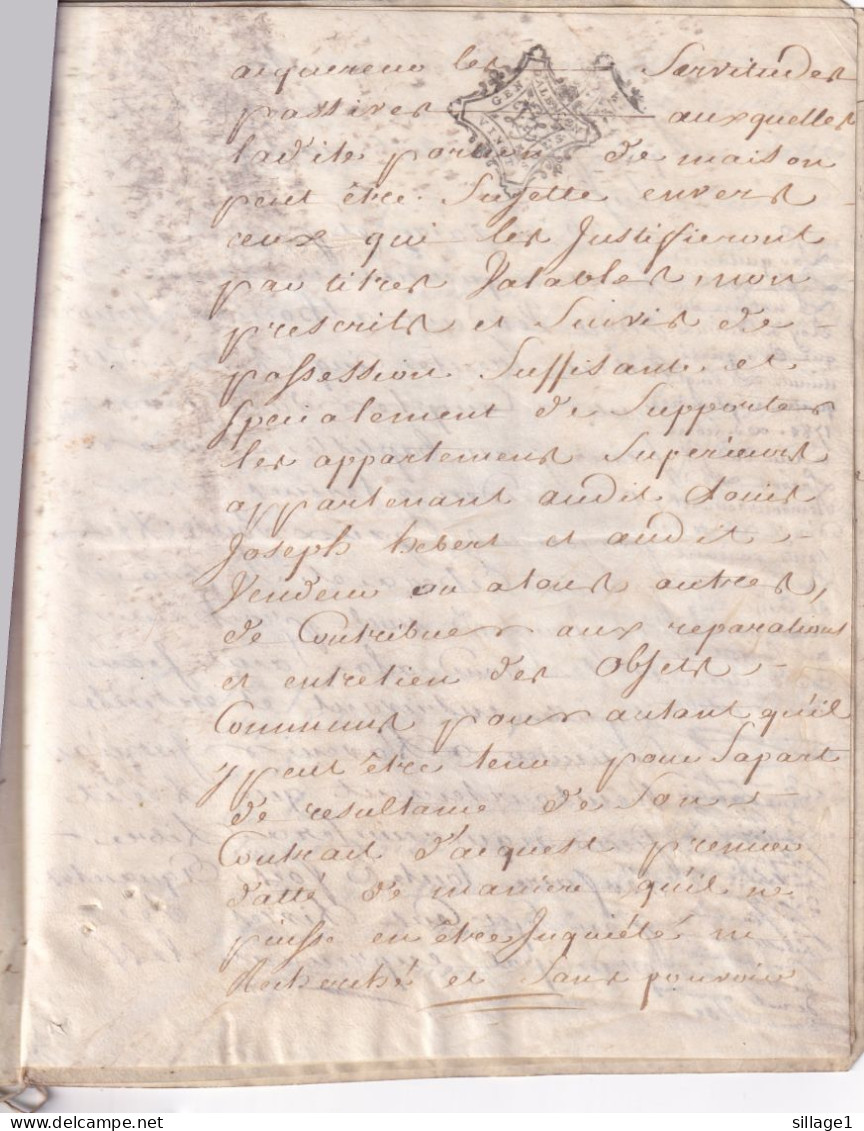 acquereur les Servitudes
passives auxquelles
ladite portion de maison
peut être Sujette envers
ceux qui les Justifieront
par titres Valables, non
prescrits et Suivis de
possession Suffisante et
Specialement de Supporter
les appartemens Superieurs
appartenant audit Louis
Joseph hebert et audit
Vendeur ou atous autres,
de Contribuer aux reparations
et entretien des Objets
Communs pour autant qu'il
y peut être tenu pour Sapart
de resultance de Son
Contrait d'acquest premier
datté de maniere qu'il ne
puisse en être Inquiété ni
Recherché et Sans pouvoir
GEN
VINGT
delcampe.net
sillage1